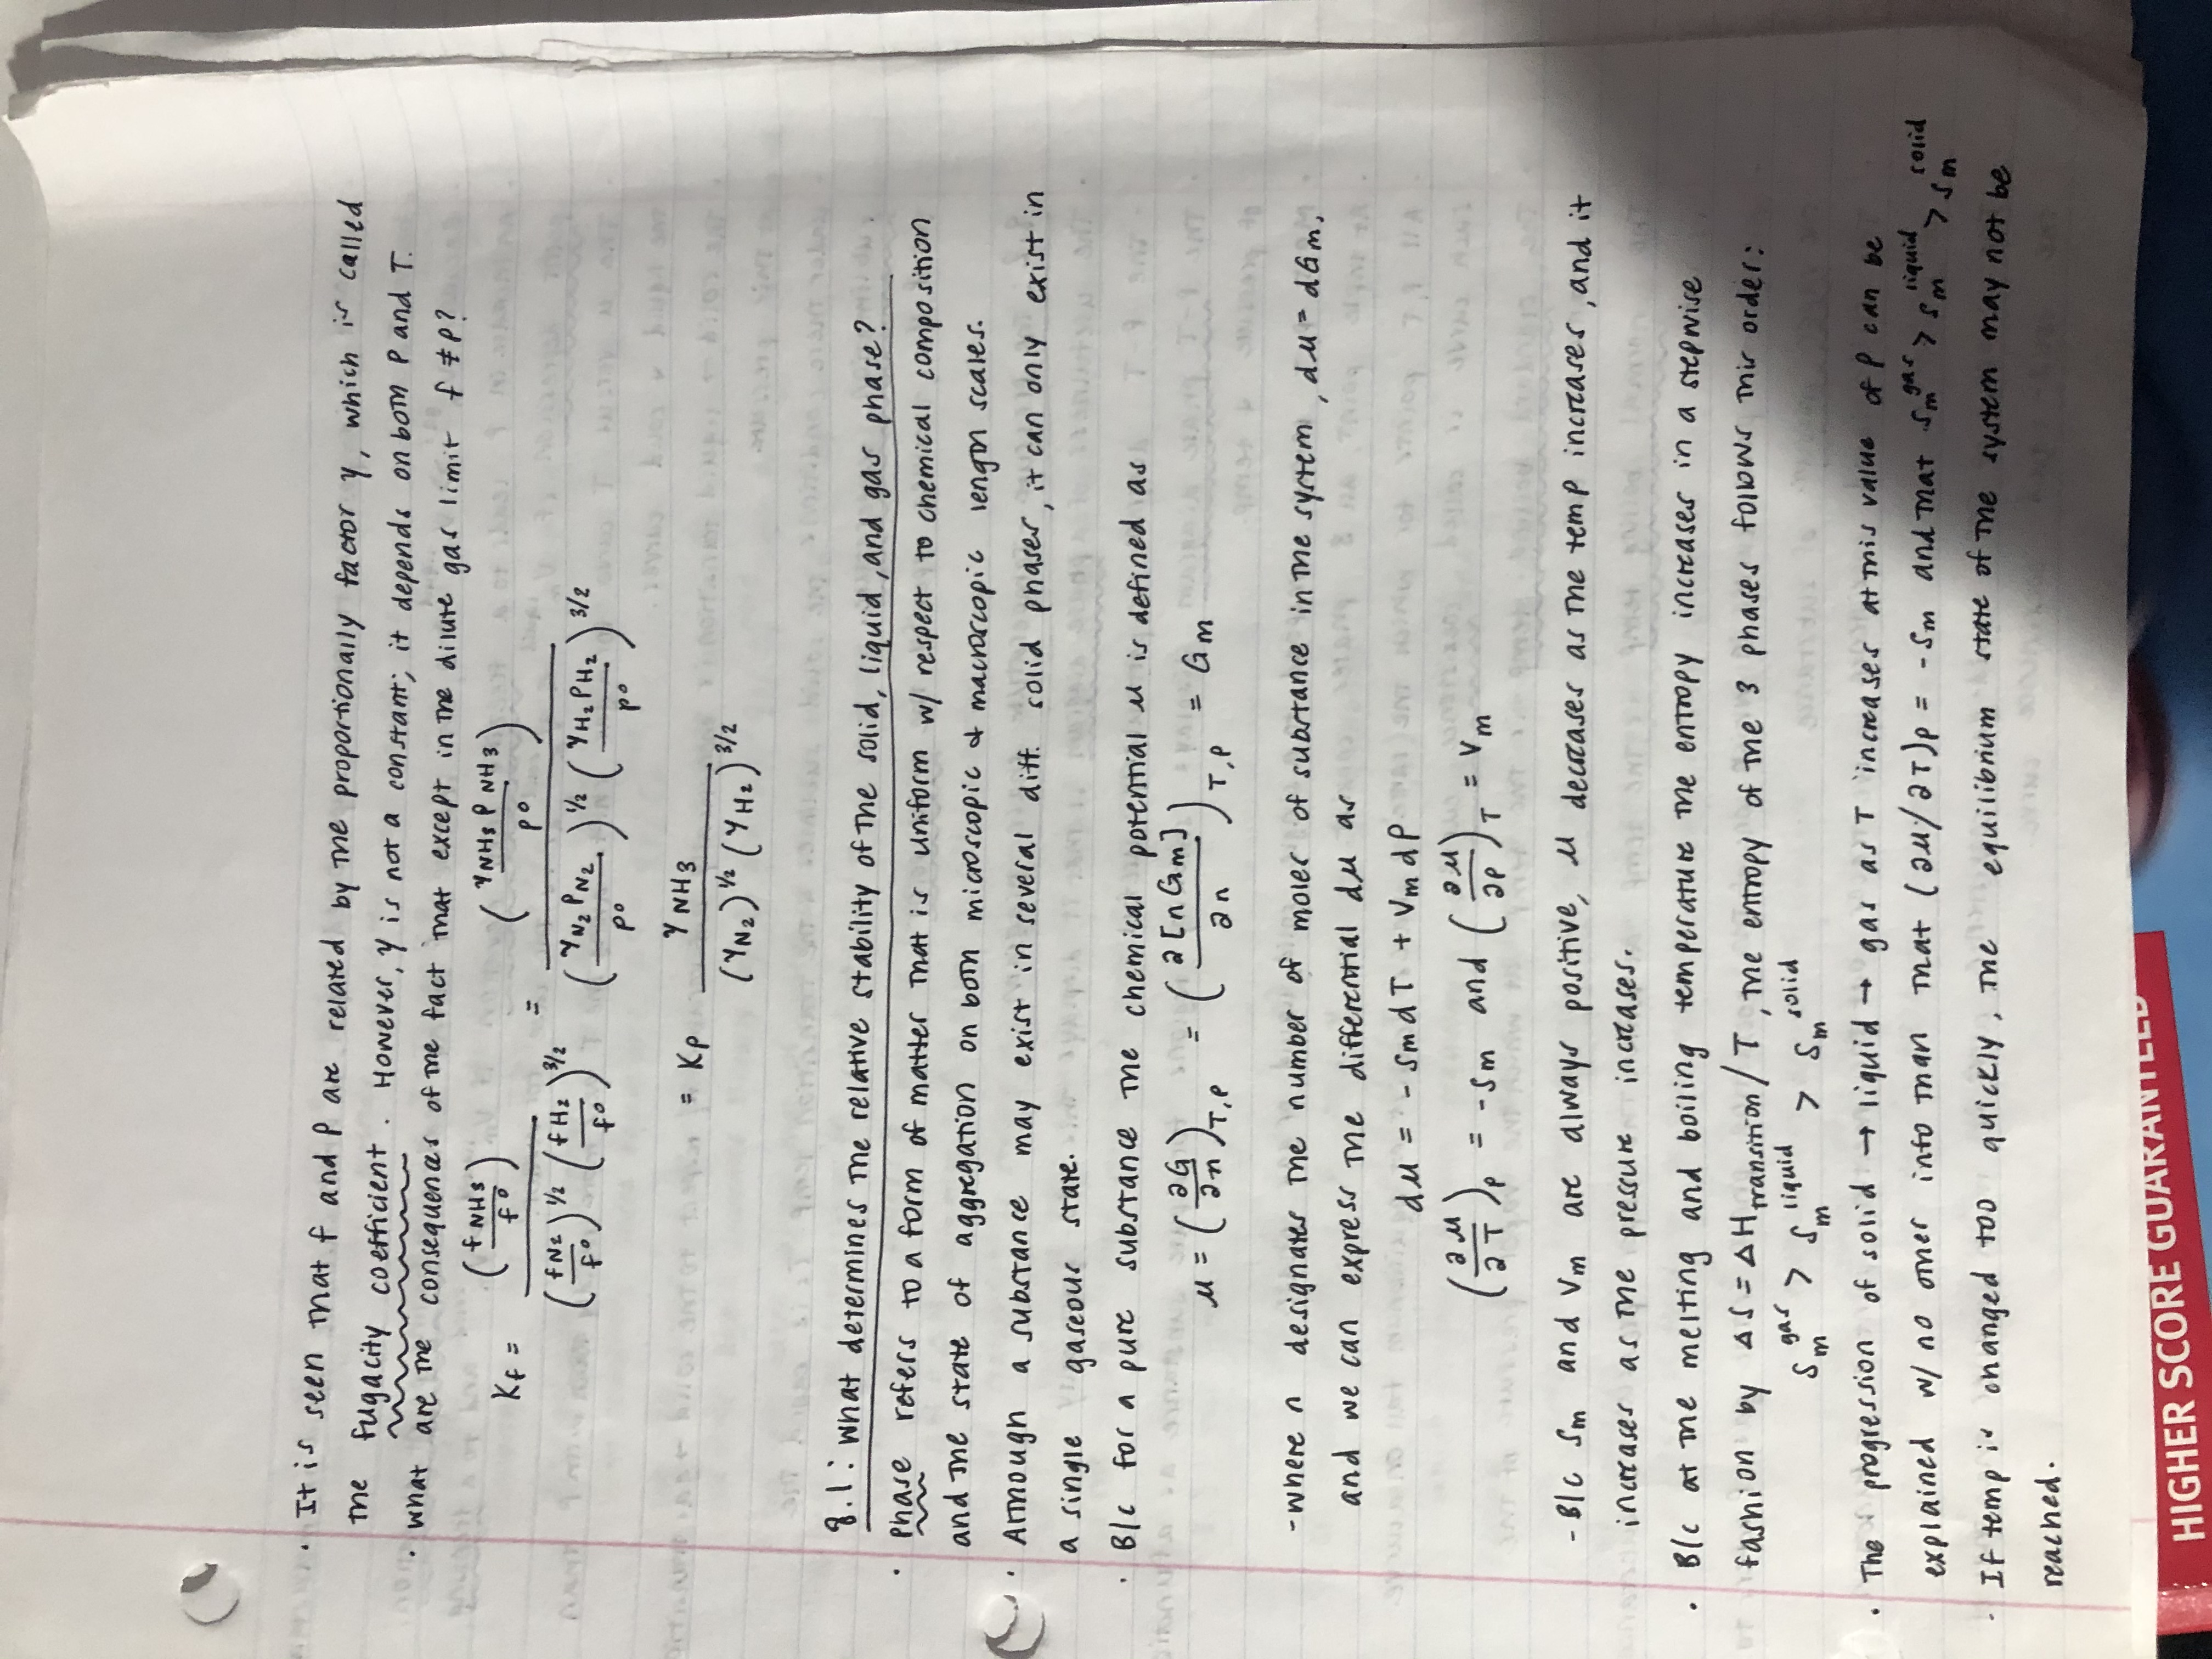 · It is seen that f and P are related by the proportionally factor γ, which is called
the fugacity coefficient. However, γ is not a constant; it depends on both P and T.
· what are the consequences of the fact that except in the dilute gas limit f ≠ P?
Kf = (fNH3/f°) / ((fN2/f°)^1/2 (fH2/f°)^3/2) = (γNH3 PNH3/P°) / ((γN2 PN2/P°)^1/2 (γH2 PH2/P°)^3/2)
= Kp γNH3 / ((γN2)^1/2 (γH2)^3/2)
8.1: What determines the relative stability of the solid, liquid, and gas phase?
· Phase refers to a form of matter that is uniform w/ respect to chemical composition
and the state of aggregation on both microscopic & macroscopic length scales.
· Although a substance may exist in several diff. solid phases, it can only exist in
a single gaseous state.
· B/c for a pure substance the chemical potential μ is defined as
μ = (∂G/∂n)T,P = (∂[nGm]/∂n)T,P = Gm
- where n designates the number of moles of substance in the system, dμ = dGm,
and we can express the differential dμ as
dμ = - Sm dT + Vm dP
(∂μ/∂T)P = -Sm and (∂μ/∂P)T = Vm
- B/c Sm and Vm are always positive, μ decreases as the temp increases, and it
increases as the pressure increases.
· B/c at the melting and boiling temperature the entropy increases in a stepwise
fashion by ΔS = ΔHtransition/T, the entropy of the 3 phases follows this order:
Sm^gas > Sm^liquid > Sm^solid
· The progression of solid → liquid → gas as T increases at this value of P can be
explained w/ no other info than that (∂μ/∂T)P = -Sm and that Sm^gas > Sm^liquid > Sm^solid
· If temp is changed too quickly, the equilibrium state of the system may not be
reached.
HIGHER SCORE GUARANTEED